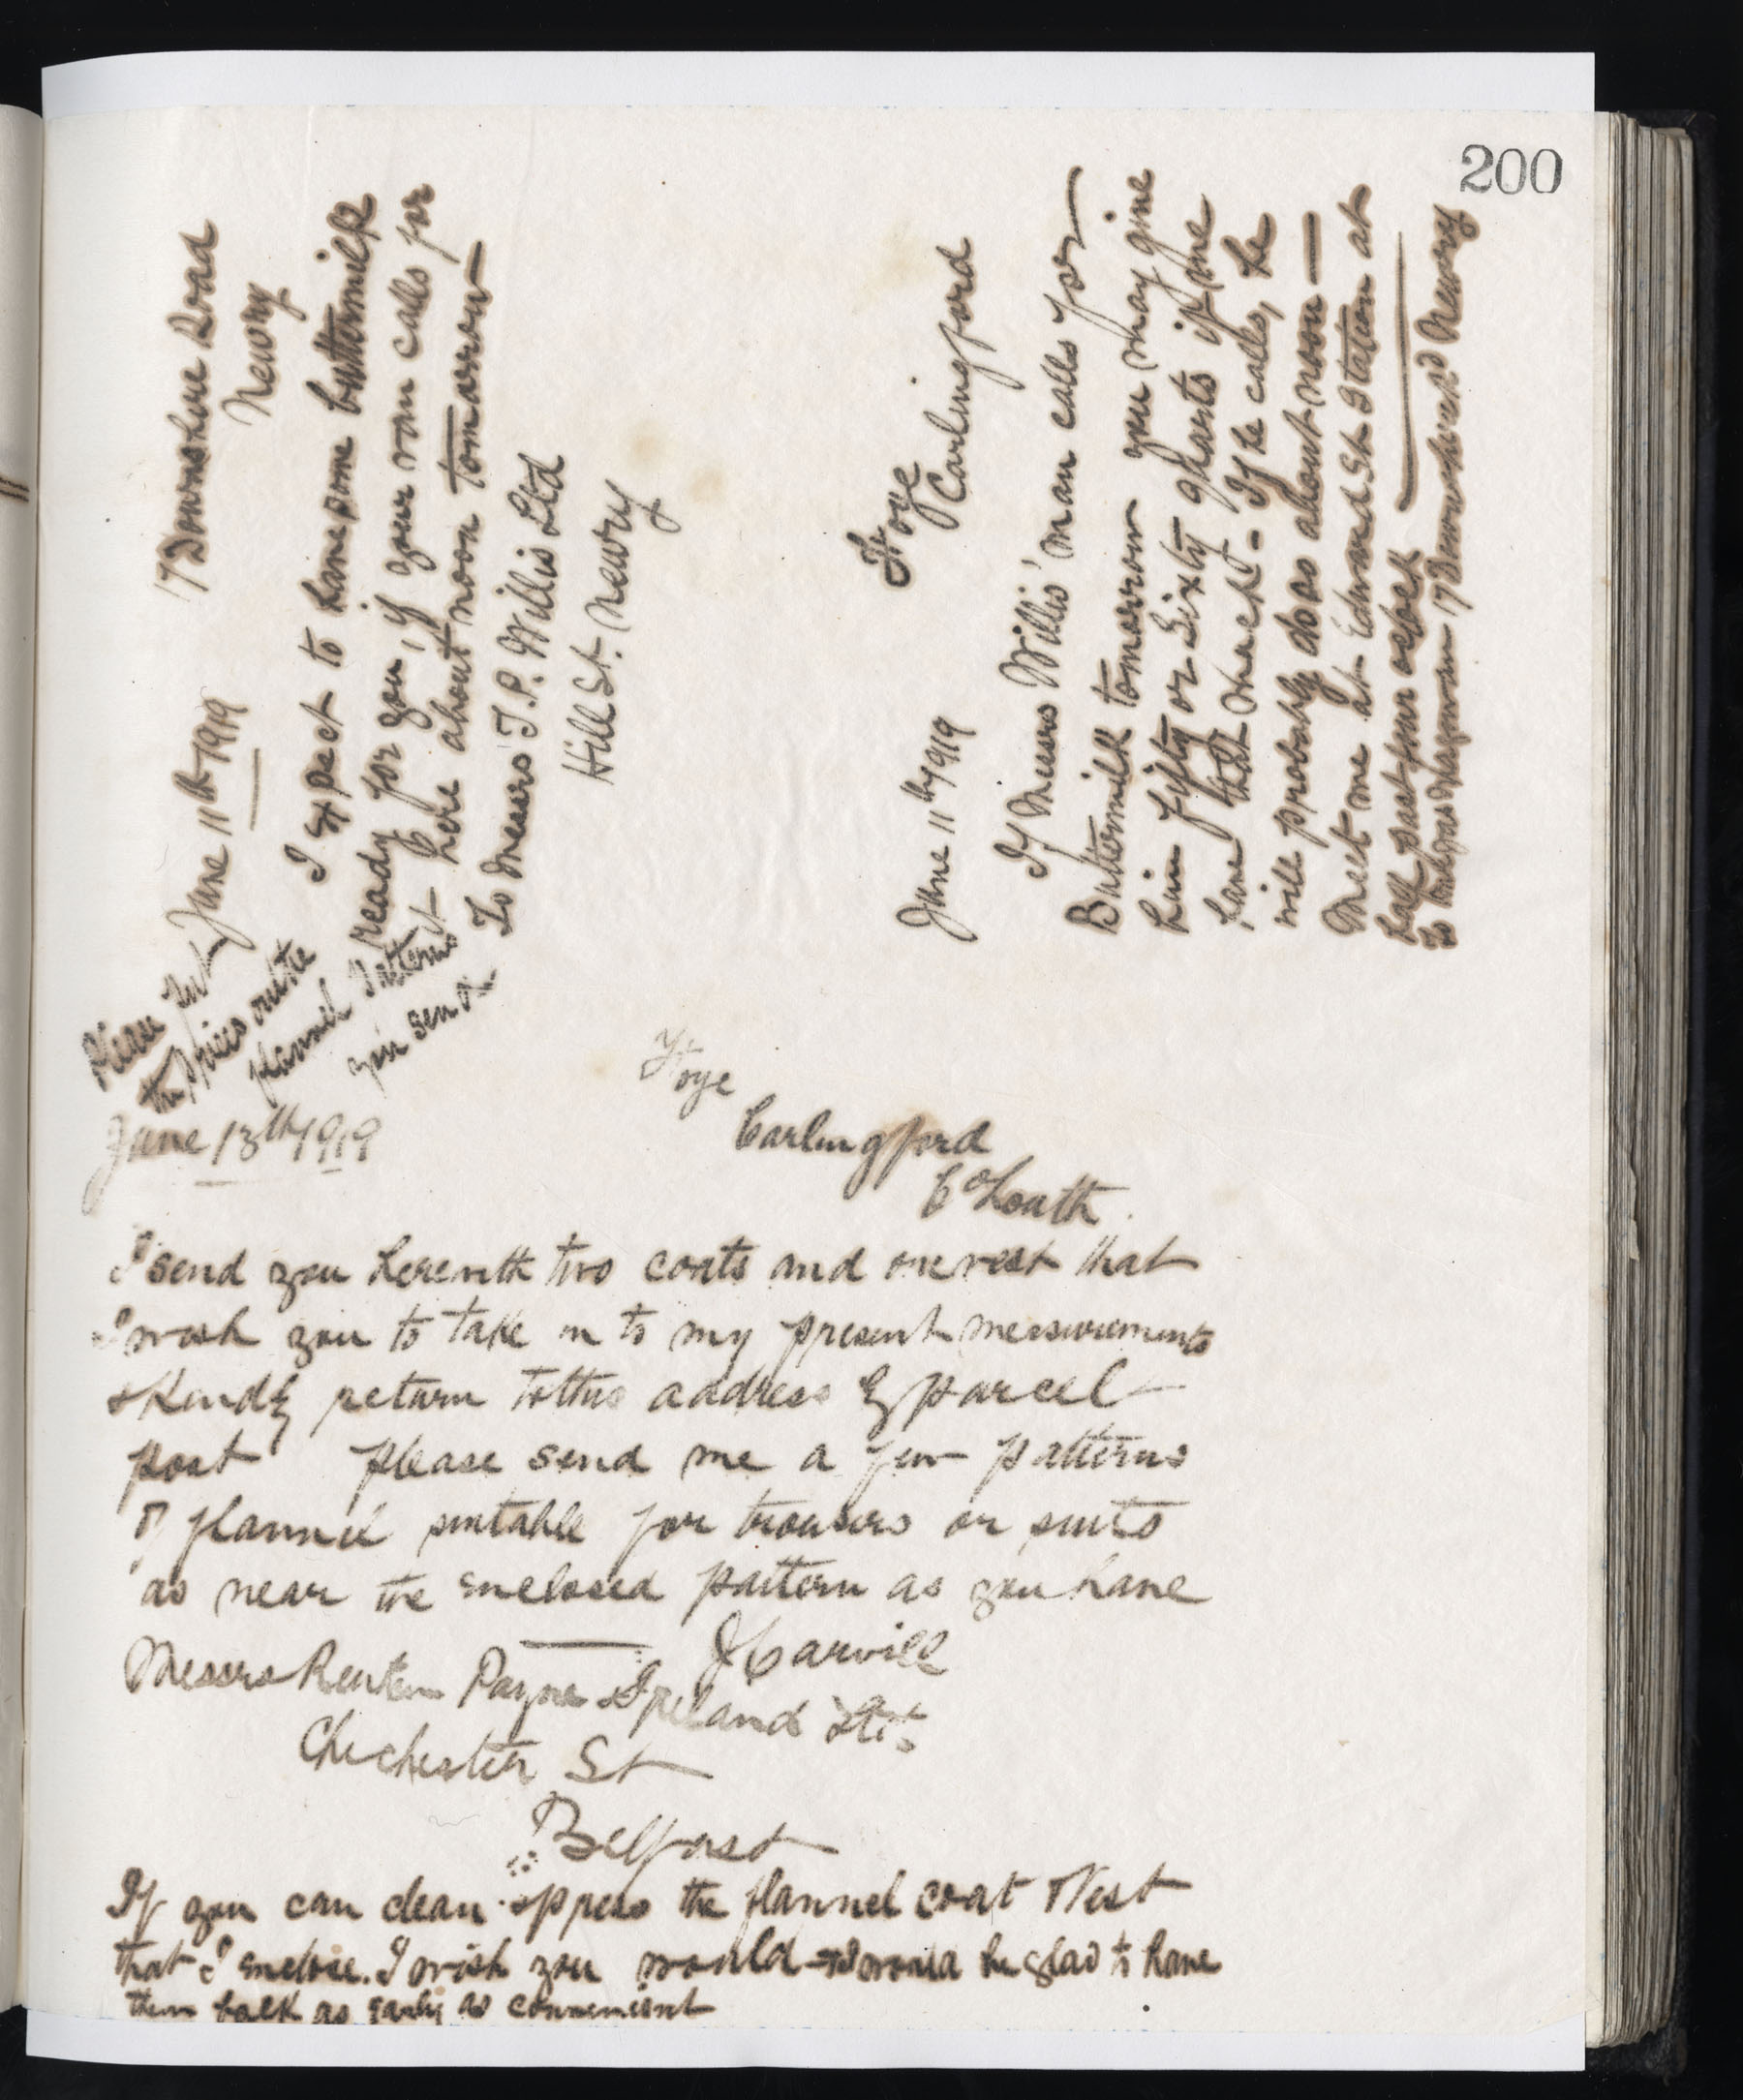 200
17 Downshire Road
Newry
June 11th 1919
I expect to have some buttermilk
ready for you, if your van calls for
it here about noon tomorrow
To Messrs T.P. Willis Ltd
Hill St. Newry
Ffoye
Carlingford
June 11th 1919
If Messrs Willis' man calls for
Buttermilk tomorrow you may give
him fifty or sixty quarts if we
have that much - If he calls, he
will probably do so about noon —
Meet me at Edward St Station at
half past four oclock
17 Downshire Rd Newry
Please put
the prices on the
flannel patterns
you send
June 13th 1919
Ffoye
Carlingford
Co Louth.
I send you herewith two coats and one vest that
I wish you to take in to my present measurements
& kindly return to this address by parcel
post please send me a few patterns
of flannel suitable for trousers or suits
as near the enclosed pattern as you have
J Carvill
Messrs Renten Payne & Ireland Ltd.
Chichester St
Belfast
If you can clean & press the flannel coat & Vest
that I enclose. I wish you would & I would be glad to have
them back as early as convenient